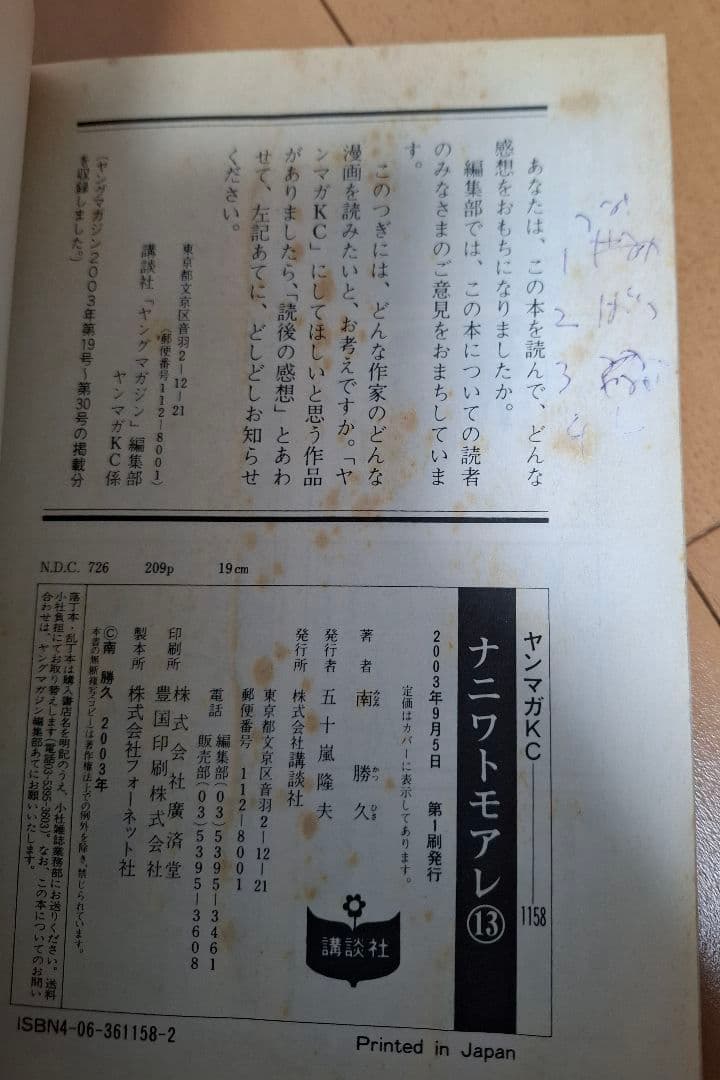 あなたは、この本を読んで、どんな
感想をおもちになりましたか。
編集部では、この本についての読者
のみなさまのご意見をおまちしていま
す。
このつぎには、どんな作家のどんな
漫画を読みたいと、お考えですか。「ヤ
ンマガKC」にしてほしいと思う作品
がありましたら、「読後の感想」とあわ
せて、左記あてに、どしどしお知らせ
ください。
東京都文京区音羽2-12-21
(郵便番号112-8001)
講談社「ヤングマガジン」編集部
ヤンマガKC係
(ヤングマガジン2003年第19号〜第30号の掲載分
を収録しました。)
1
2
3
4
N.D.C. 726 209p 19cm
ヤンマガKC 1158
ナニワトモアレ⑬
2003年9月5日 第1刷発行
定価はカバーに表示してあります。
著者 南 勝久
かつ ひさ
発行者 五十嵐隆夫
発行所 株式会社講談社
東京都文京区音羽2-12-21
郵便番号 112-8001
電話 編集部(03)5395-3461
販売部(03)5395-3608
印刷所 株式会社廣済堂
豊国印刷株式会社
製本所 株式会社フォーネット社
©南 勝久 2003年
本書の無断複写(コピー)は著作権法上での例外を除き、禁じられています。
落丁本・乱丁本は購入書店名を明記のうえ、小社雑誌業務部にお送りください。送料
小社負担にてお取り替えします(電話03-5395-3603)。なお、この本についてのお問い
合わせは、ヤングマガジン編集部あてにお願いいたします。
講談社
ISBN4-06-361158-2
Printed in Japan